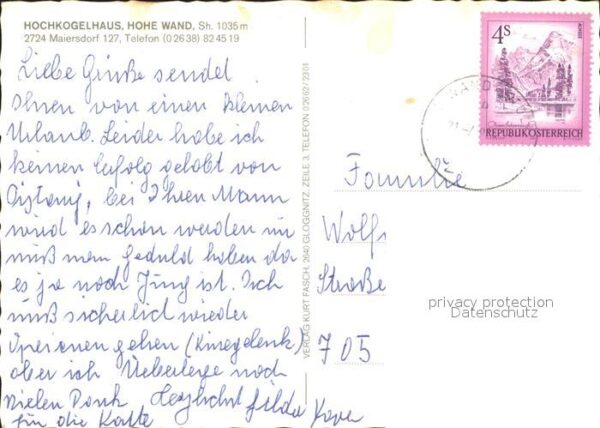 HOCHKOGELHAUS, HOHE WAND, Sh. 1035 m
2724 Maiersdorf 127, Telefon (0 26 38) 82 45 19
Liebe Grüße sendet
Ihnen von einen kleinen
Urlaub. Leider habe ich
keinen Erfolg gehabt von
bei Ihren Mann
wird es schon werden nur
muß man geduld haben da
es ja noch Jung ist. Ich
muß sicherlich wieder
gehen (Kniegelenk)
aber ich Ueberlege noch
Vielen Dank Herzlichst Hilda
für die Karte
VERLAG KURT FASCH, 2640 GLOGGNITZ, ZEILE 3, TELEFON 02662/2301
4S
REPUBLIK ÖSTERREICH
Familie
Wolf
Straße
705
privacy protection
Datenschutz